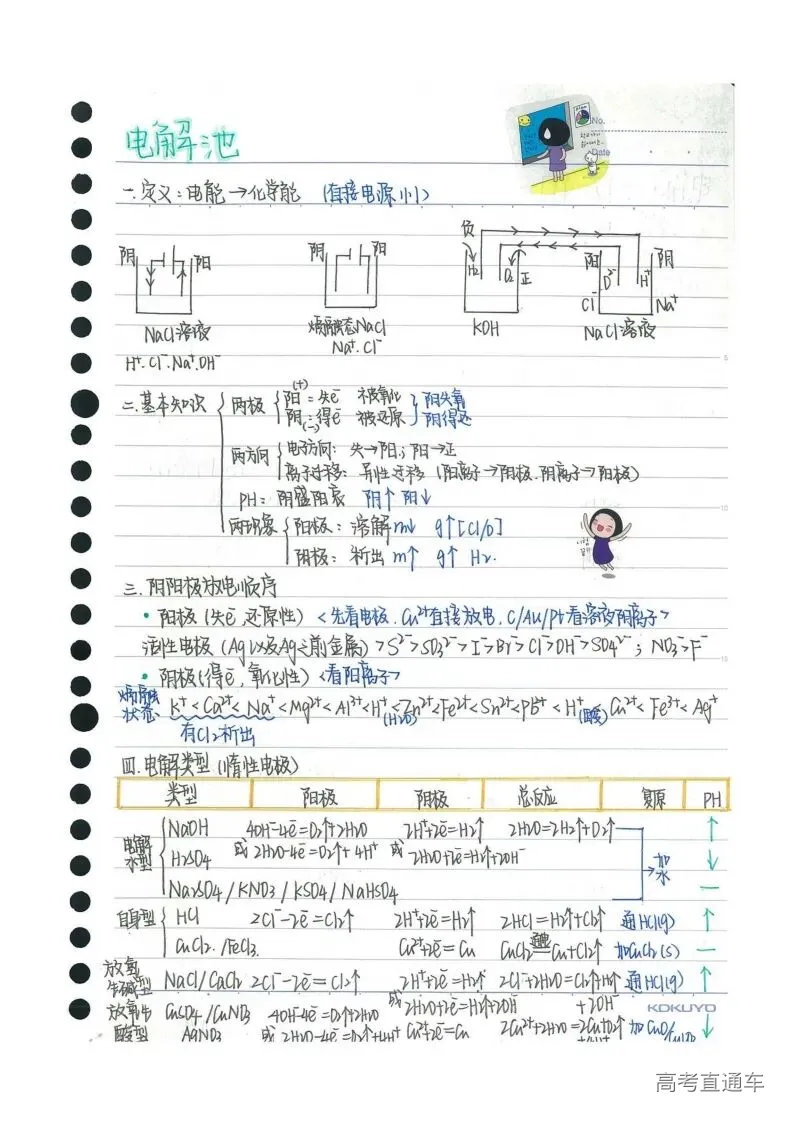 电解池
No.
Date
一.定义：电能→化学能 (直接电源小)
阴 阳
NaCl溶液
H⁺.Cl⁻.Na⁺.OH⁻
阴 阳
熔融态NaCl
Na⁺.Cl⁻
负 H₂ O₂ 正
KOH
阳 O²⁻ H⁺ 阴
Cl⁻ Na⁺
NaCl溶液
二.基本知识
两极
阳(+)：失e⁻ 被氧化 阳失氧
阴(−)：得e⁻ 被还原 阴得还
两方向
电子方向： 失→阳；阳→正
离子迁移： 异性迁移 (阳离子→阴极.阴离子→阳极)
PH： 阴盛阳衰 阴↑阳↓
两现象
阳极： 溶解m↓ g↑[Cl/O]
阴极： 析出m↑ g↑ H₂.
三.阴阳极放电顺序
• 阳极 (失e⁻,还原性) <先看电极.Cu²⁺直接放电.C/Au/Pt看溶液阴离子>
活性电极 (Ag以及Ag之前金属) >S²⁻>SO₃²⁻>I⁻>Br⁻>Cl⁻>OH⁻>SO₄²⁻；NO₃⁻>F⁻
• 阴极(得e⁻,氧化性) <看阳离子>
熔融状态 K⁺<Ca²⁺<Na⁺<Mg²⁺<Al³⁺<H⁺(H₂O)<Zn²⁺<Fe²⁺<Sn²⁺<Pb⁺<H⁺(酸)<Cu²⁺<Fe³⁺<Ag⁺
有Cl₂析出
四.电解类型 (惰性电极)
类型 阳极 阴极 总反应 复原 PH
电解水型 NaOH 4OH⁻-4e⁻=O₂↑+2H₂O 2H⁺+2e⁻=H₂↑ 2H₂O=2H₂↑+O₂↑ ↑
H₂SO₄ 或2H₂O-4e⁻=O₂↑+4H⁺ 或2H₂O+2e⁻=H₂↑+2OH⁻ 加水 ↓
Na₂SO₄/KNO₃/KSO₄/NaHSO₄ —
自身型 HCl 2Cl⁻-2e⁻=Cl₂↑ 2H⁺+2e⁻=H₂↑ 2HCl=H₂↑+Cl₂↑ 通HCl(g) ↑
CuCl₂./FeCl₃. Cu²⁺+2e⁻=Cu CuCl₂=通电=Cu+Cl₂↑ 加CuCl₂(s) —
放氢生碱型 NaCl/CaCl₂ 2Cl⁻-2e⁻=Cl₂↑ 2H⁺+2e⁻=H₂↑ 2Cl⁻+2H₂O=Cl₂↑+H₂↑ 通HCl(g) ↑
或2H₂O+2e⁻=H₂↑+2OH⁻ +2OH⁻
KOKUYO
放氧生酸型 CuSO₄/CuNO₃ 4OH⁻-4e⁻=O₂↑+2H₂O Cu²⁺+2e⁻=Cu 2Cu²⁺+2H₂O=2Cu+O₂↑ 加CuO/ ↓
AgNO₃ 或2H₂O-4e⁻=O₂↑+4H⁺
高考直通车